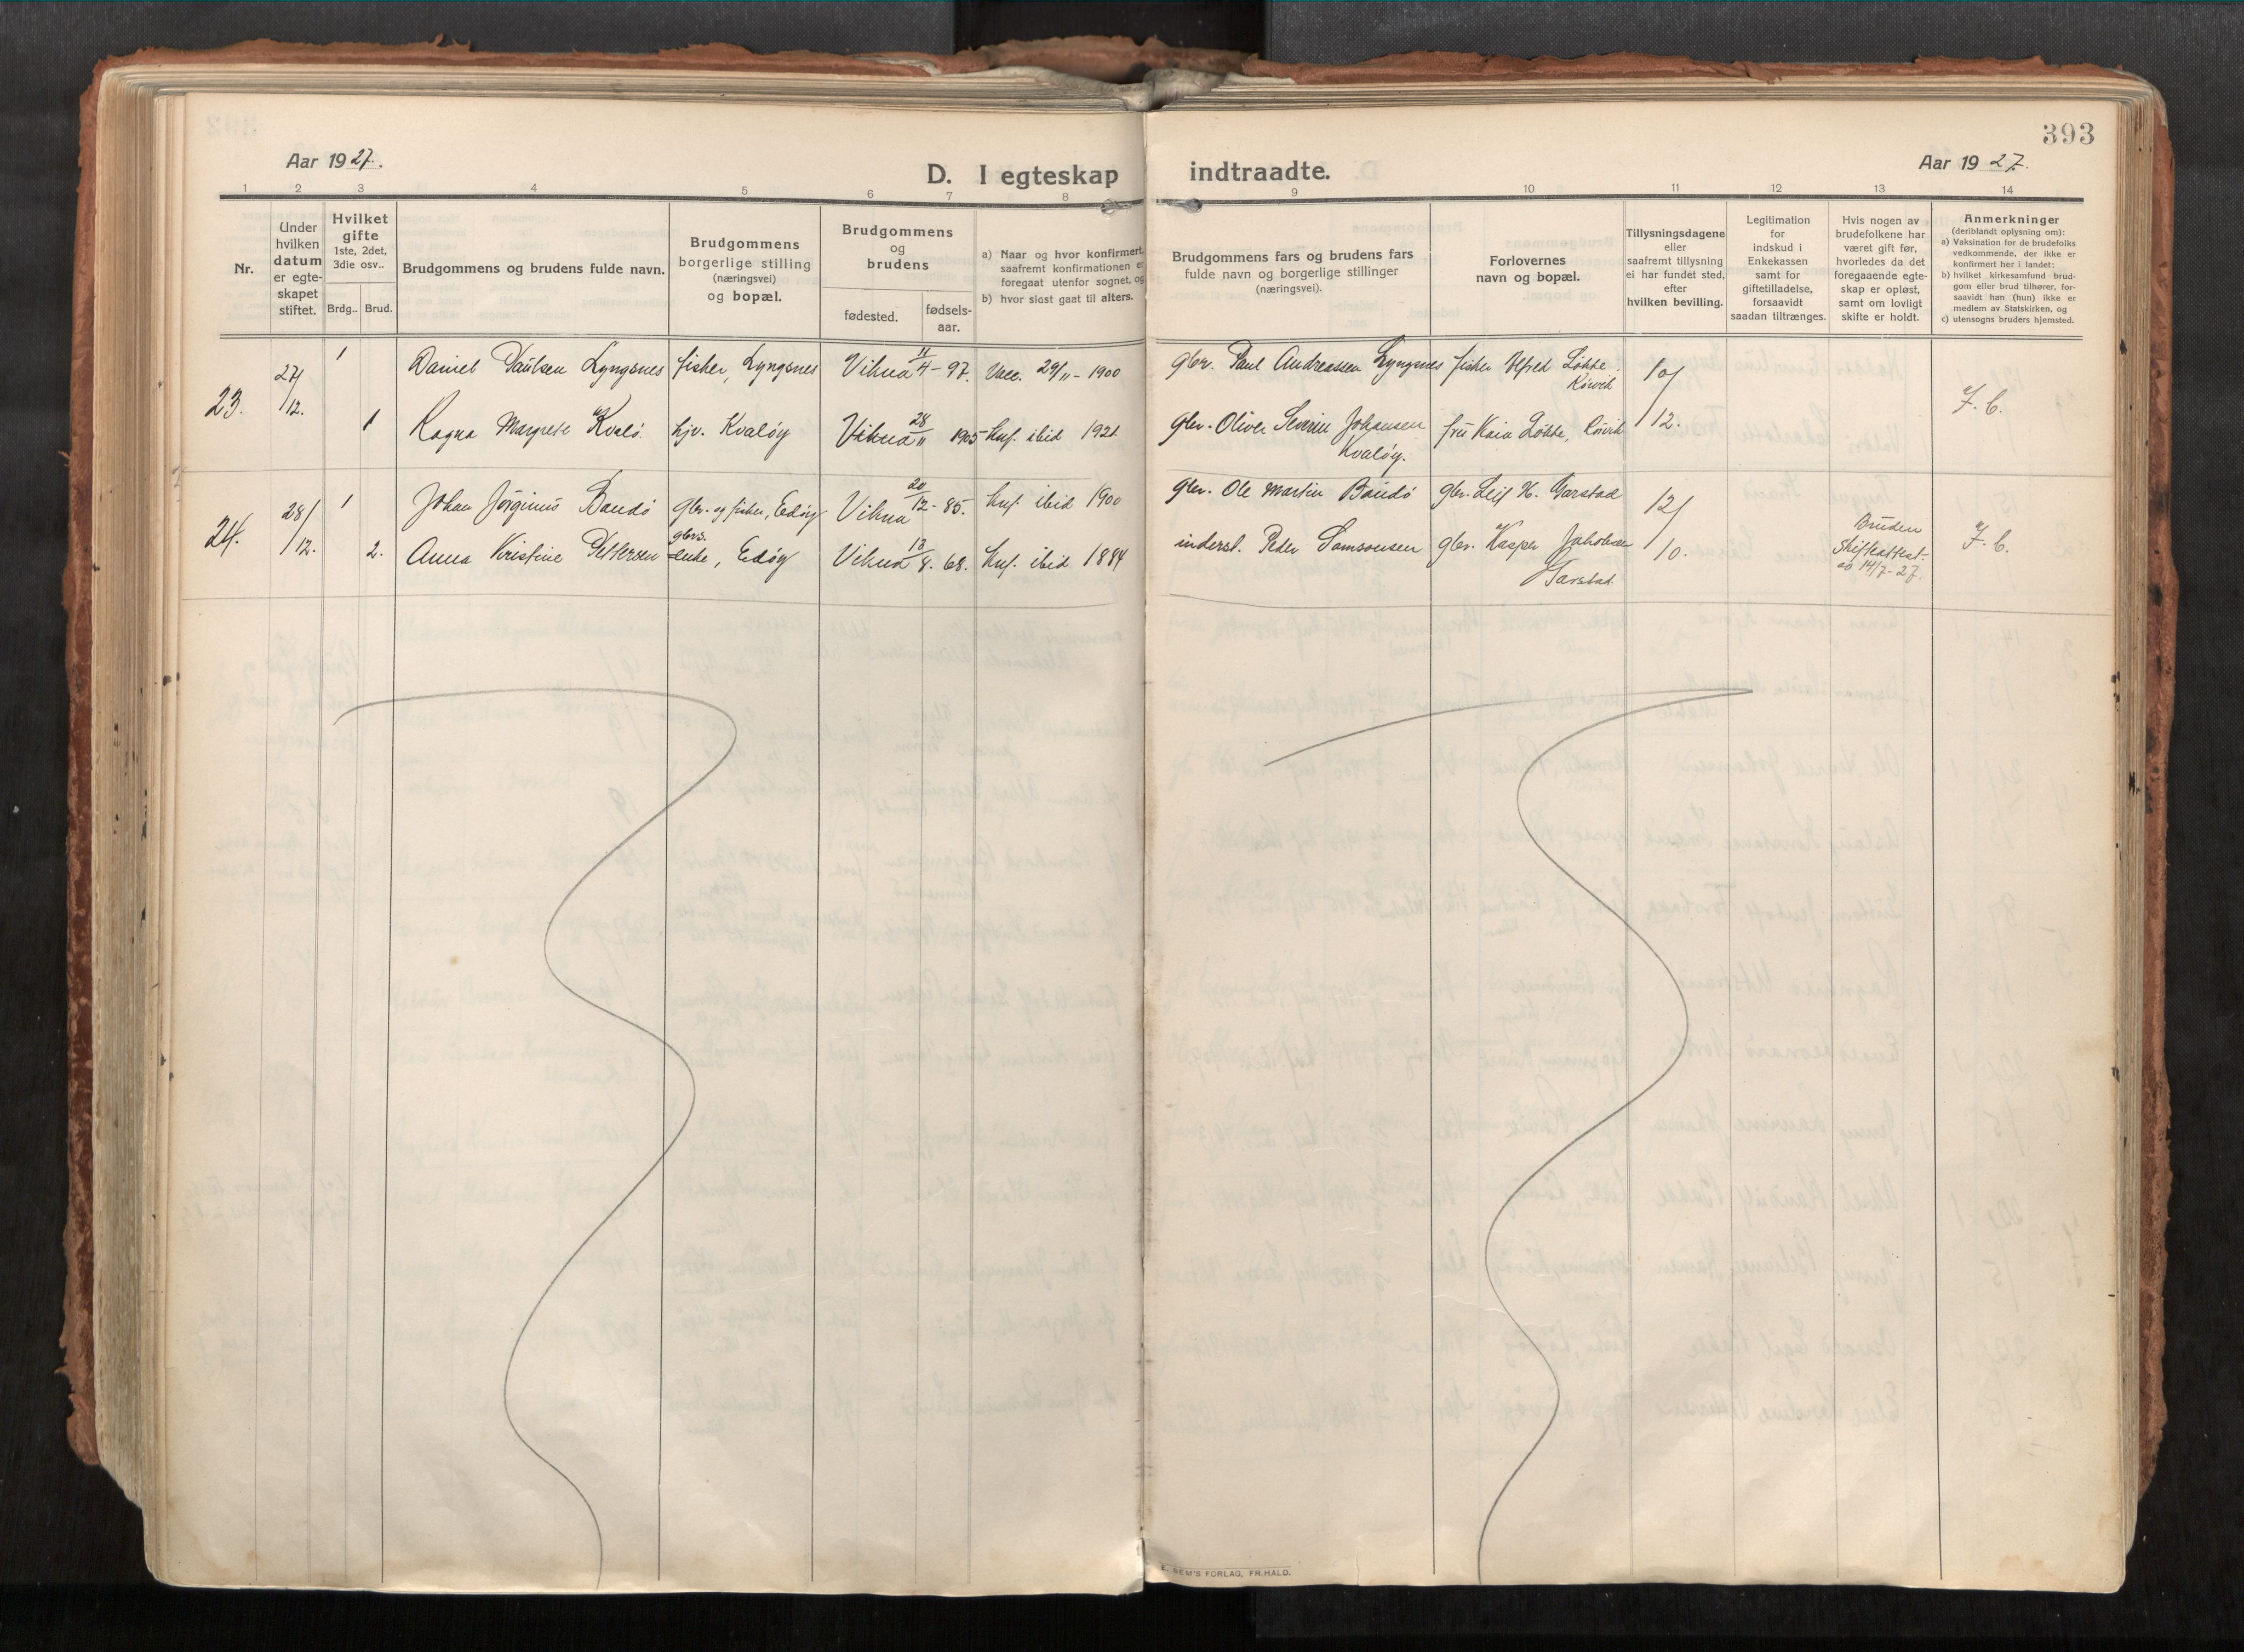 393
Aar 1927.
D. I egteskap indtraadte.
Aar 1927.
1 2 3 4 5 6 7 8 9 10 11 12 13 14
Nr.
Under
hvilken
datum
er egte-
skapet
stiftet.
Hvilket
gifte
1ste, 2det,
3die osv..
Brdg.. Brud.
Brudgommens og brudens fulde navn.
Brudgommens
borgerlige stilling
(næringsvei)
og bopæl.
Brudgommens
og
brudens
fødested.
fødsels-
aar.
a) Naar og hvor konfirmert,
saafremt konfirmationen er
foregaat utenfor sognet, og
b) hvor sidst gaat til alters.
Brudgommens fars og brudens fars
fulde navn og borgerlige stillinger
(næringsvei).
Forlovernes
navn og bopæl.
Tillysningsdagene
eller
saafremt tillysning
ei har fundet sted,
efter
hvilken bevilling.
Legitimation
for
indskud i
Enkekassen
samt for
giftetilladelse,
forsaavidt
saadan tiltrænges.
Hvis nogen av
brudefolkene har
været gift før,
hvorledes da det
foregaaende egte-
skap er opløst,
samt om lovligt
skifte er holdt.
Anmerkninger
(deriblandt oplysning om):
a) Vaksination for de brudefolks
vedkommende, der ikke er
konfirmert her i landet;
b) hvilket kirkesamfund brud-
gom eller brud tilhører, for-
saavidt han (hun) ikke er
medlem av Statskirken, og
c) utensogns bruders hjemsted.
23. 27/12. 1 Daniel Paulsen Lyngsnes fisker, Lyngsnes Vikna 11/4 - 97. Vacc. 29/11 - 1900 gbr. Paul Andreassen Lyngsnes fisker Alfred Løkke, Rørvik 10/12.
1 Ragna Margrete Kvalø. hjv. Kvaløy Vikna 28/11 1905 knf. ibid 1921. gbr. Oliver Severin Johansen Kvaløy. frü Kaia Løkke, Rørvik
24. 28/12. 1 Johan Jørginus Bondø gbr. og fisker, Edøy Vikna 20/12 - 85. knf. ibid 1900 gbr. Ole Martin Bondø gbr. Leif H. Garstad 12/10.
2. Anna Kristine Pettersen gbrs.enke, Edøy Vikna 13/8. 68. knf. ibid 1884 inderst. Peder Samsonsen gbr. Kasper Jakobsen Garstad. Bruden Skifteattest av 14/7-27.
E. SEM'S FORLAG, FR.HALD.